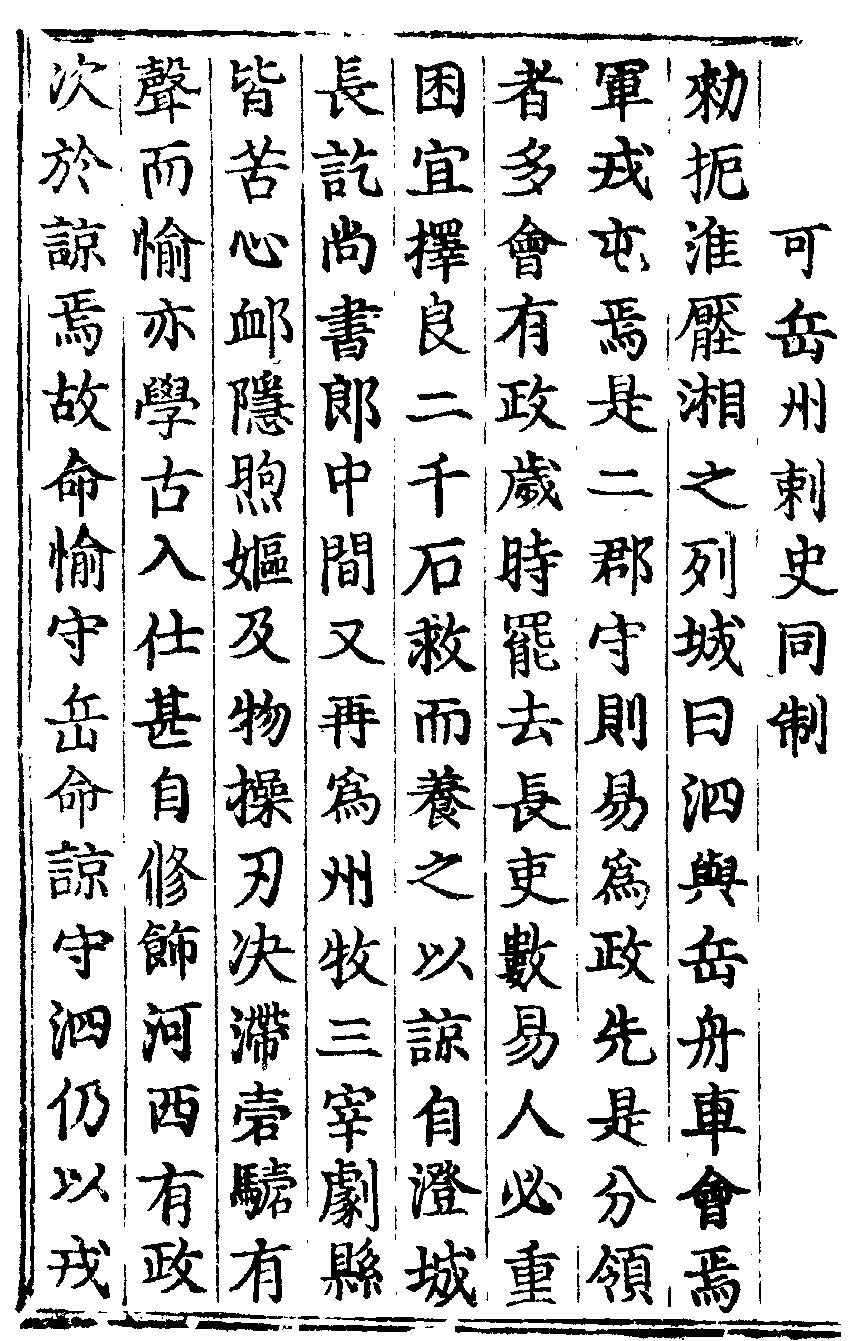 可岳州刺史同制
勑扼淮壓湘之列城曰泗與岳舟車會焉
軍戎屯焉是二郡守則易爲政先是分領
者多會有政歲時罷去長吏數易人必重
困宜擇良二千石救而養之以諒自澄城
長訖尚書郎中間又再爲州牧三宰劇縣
皆苦心卹隱煦嫗及物操刃决滯砉騞有
聲而愉亦學古入仕甚自修飾河西有政
次於諒焉故命愉守岳命諒守泗仍以戎